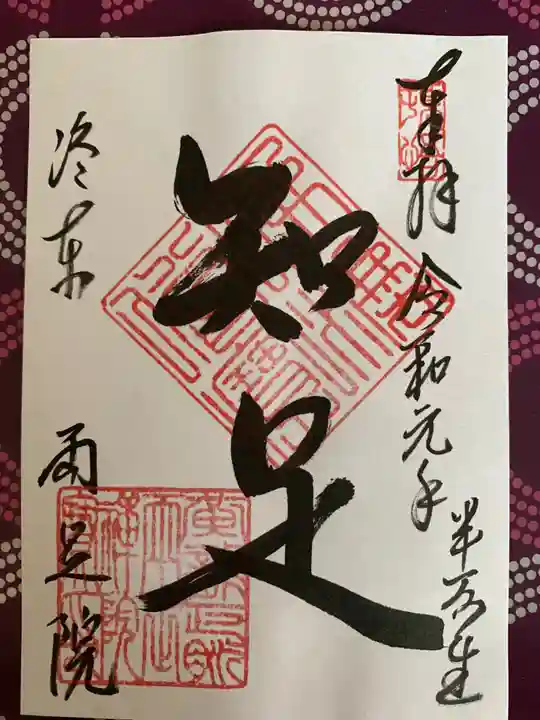 奉拝 令和元年 半夏生
知足
洛東 両足院